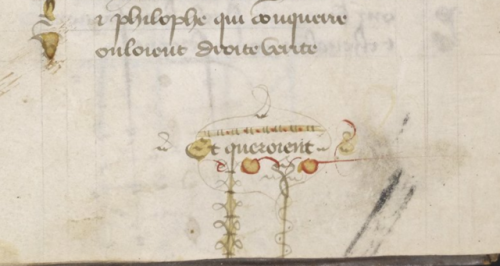 ⁊ philophe qui conquerre
vouloient droite verite
Et queroient